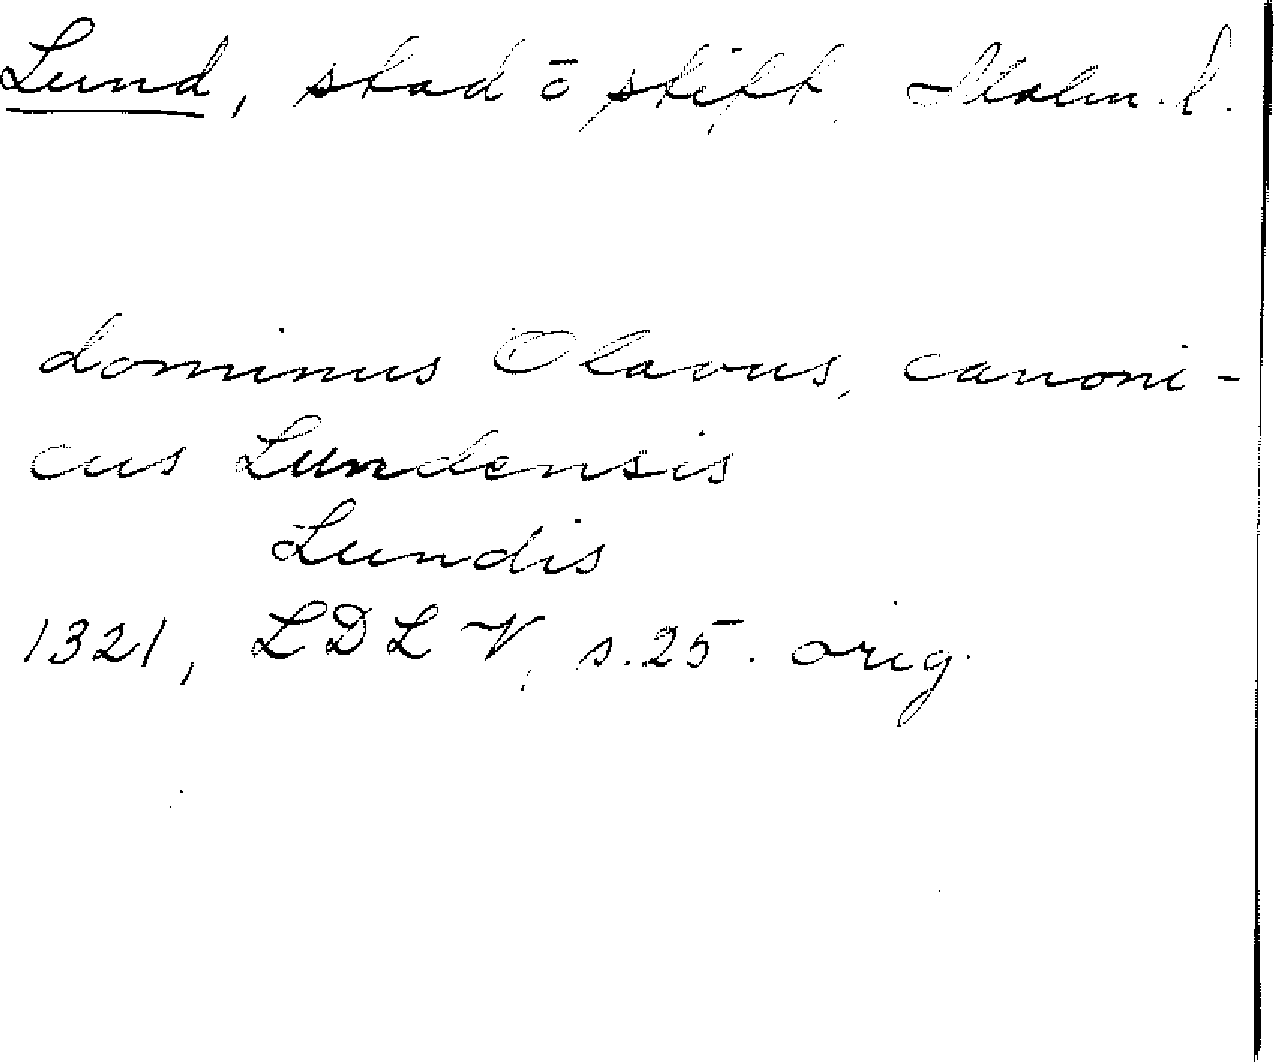 Lund, stad ō stift, Malm. l.
dominus Olavus, canoni-
cus Lundensis
Lundis
1321, LDL V, s. 25. orig.